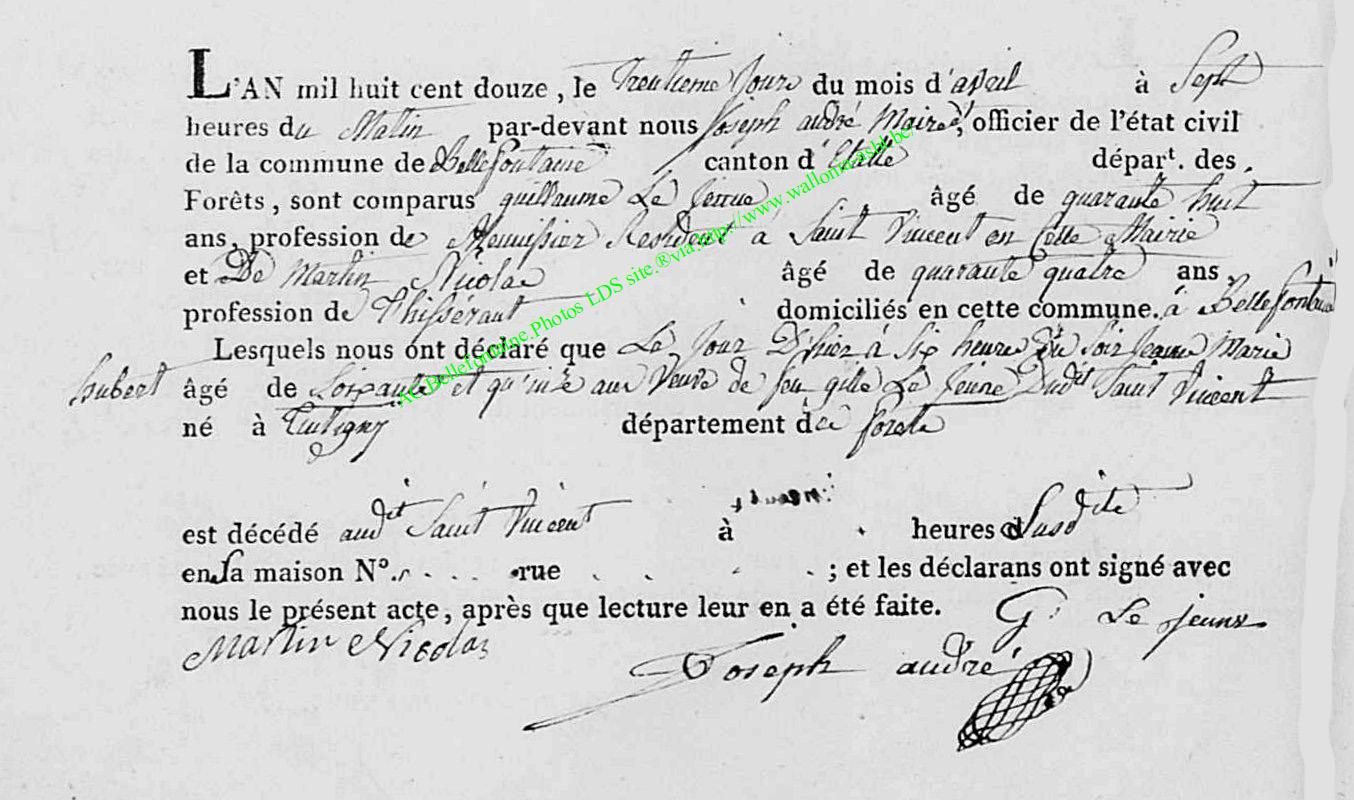 L'AN mil huit cent douze, le Trentieme Jour du mois d'avril à Sept
heures du Matin par-devant nous Joseph andré Maire, officier de l'état civil
de la commune de Bellefontaine canton d'Etalle départ. des
Forêts, sont comparus guillaume Le Jeune âgé de quarante huit
ans, profession de Menuisier Resident a Saint Vincent en Cette Mairie
et De Martin Nicolas âgé de quarante quatre ans
profession de Thisserant domiciliés en cette commune. à Bellefontaine
Lesquels nous ont déclaré que Le Jour D'hier à Six heures du Soir Jeanne Marie
hubert âgé de Soixante et qu'inze ans Veuve de feu gille Le Jeune Dudit Saint Vincent
né à Tintigny département des forets
est décédé audit Saint Vincent à heures Susdite
en Sa maison N°. rue ; et les déclarans ont signé avec
nous le présent acte, après que lecture leur en a été faite. G. Le Jeune
Martin Nicolas
Joseph andré
AC Bellefontaine Photos LDS site.®via http://www.wallonia.asbl.be/